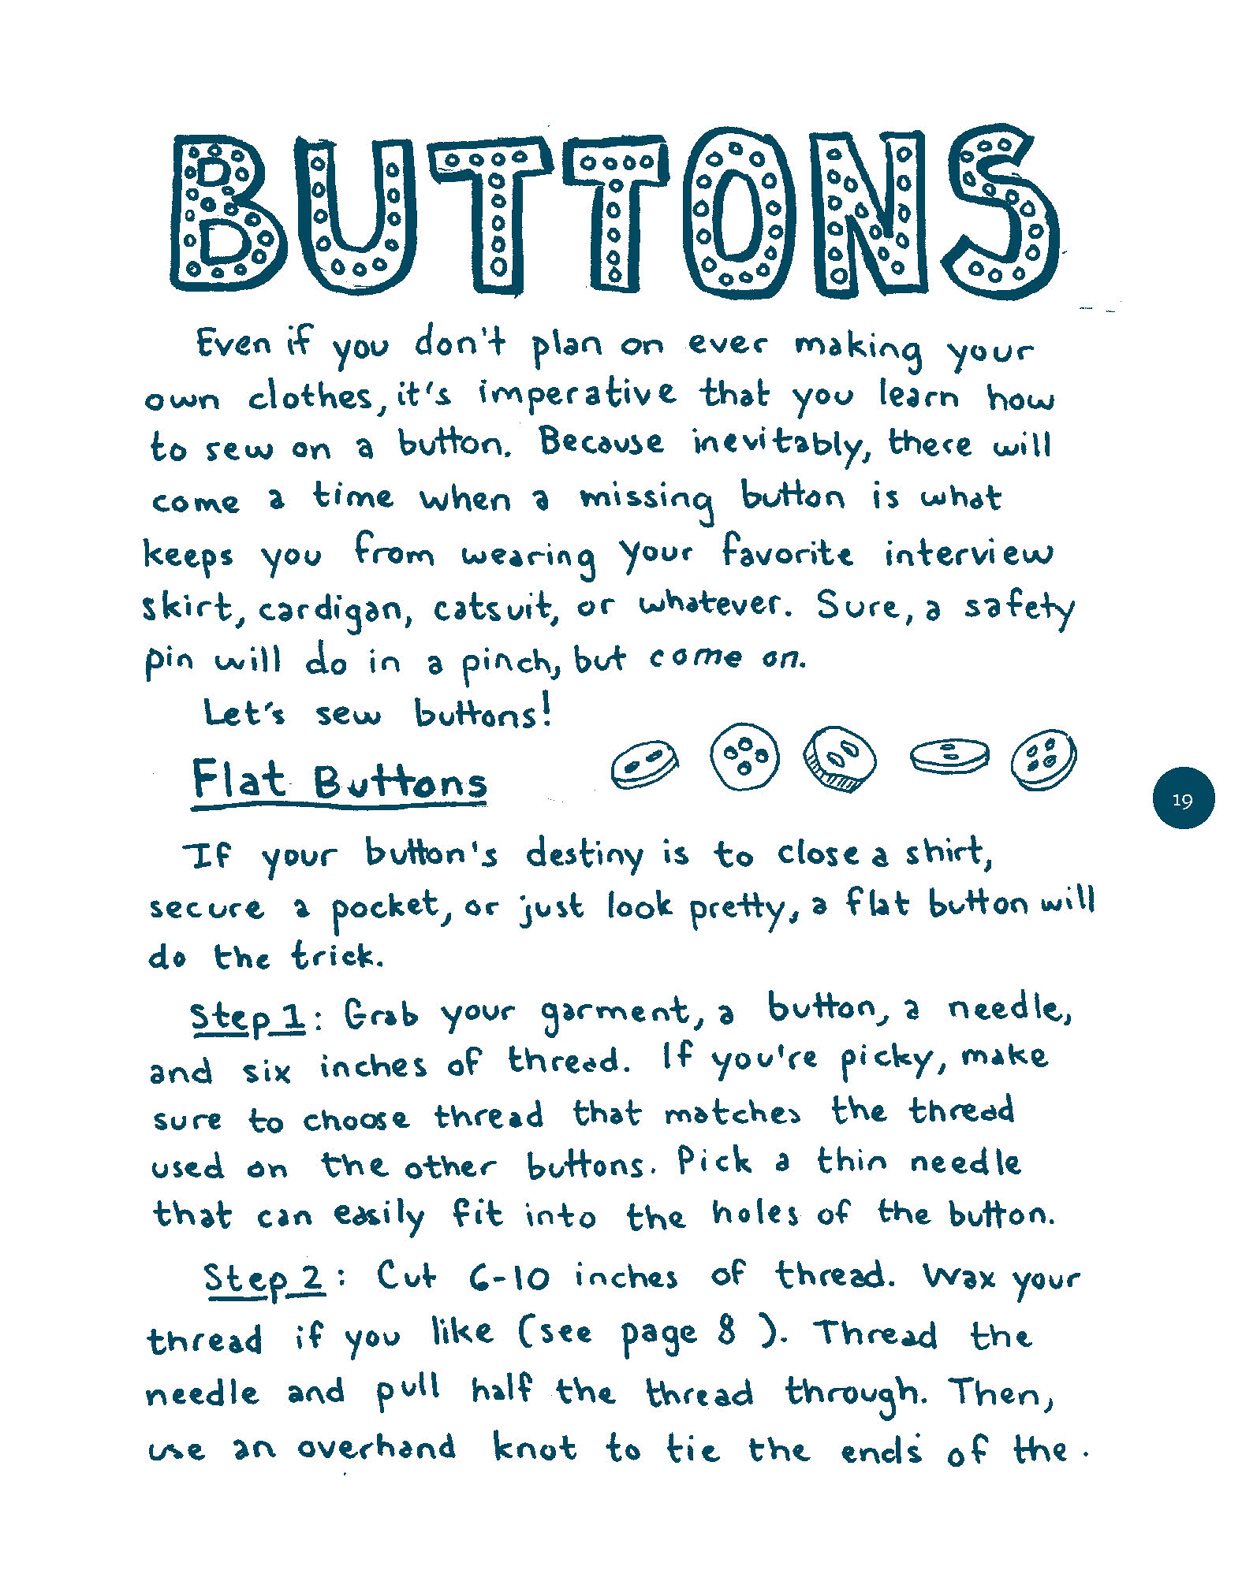 BUTTONS
Even if you don't plan on ever making your
own clothes, it's imperative that you learn how
to sew on a button. Because inevitably, there will
come a time when a missing button is what
keeps you from wearing your favorite interview
skirt, cardigan, catsuit, or whatever. Sure, a safety
pin will do in a pinch, but come on.
Let's sew buttons!
Flat Buttons
19
If your button's destiny is to close a shirt,
secure a pocket, or just look pretty, a flat button will
do the trick.
Step 1: Grab your garment, a button, a needle,
and six inches of thread. If you're picky, make
sure to choose thread that matches the thread
used on the other buttons. Pick a thin needle
that can easily fit into the holes of the button.
Step 2: Cut 6-10 inches of thread. Wax your
thread if you like (see page 8 ). Thread the
needle and pull half the thread through. Then,
use an overhand knot to tie the ends of the